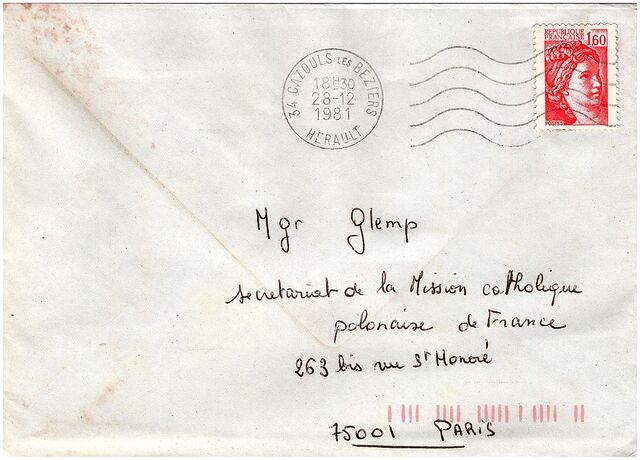 REPUBLIQUE
FRANÇAISE 1,60
POSTES
34 CAZOULS LES BEZIERS
18H30
28-12
1981
HERAULT
Mgr Glemp
secretariat de la Mission catholique
polonaise de France
263 bis rue St Honoré
75001 PARIS